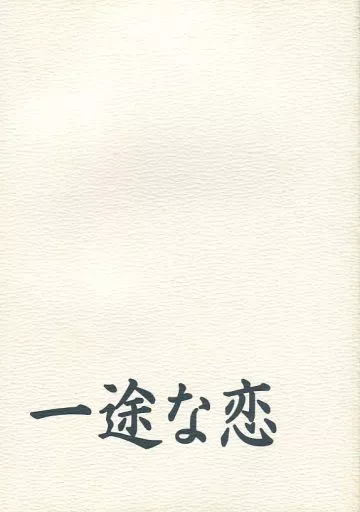 一途な恋